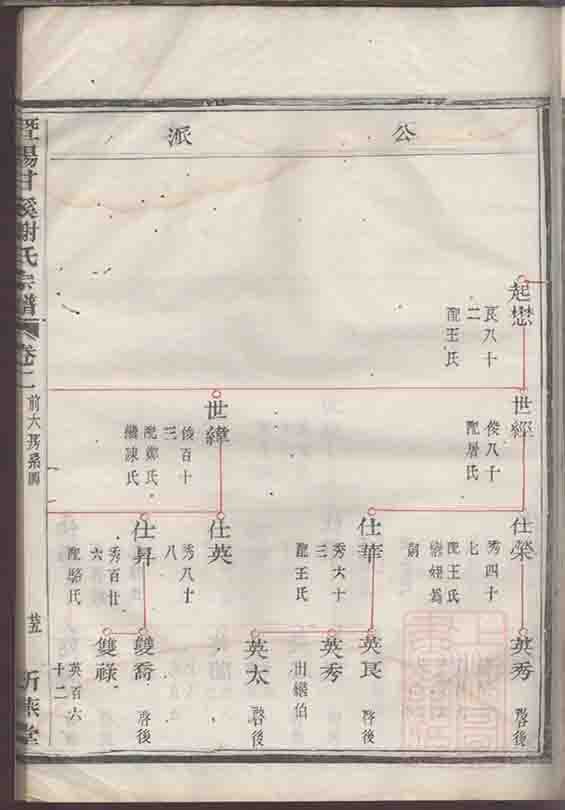 公派
起懋
良八十
二
配王氏
世經
俊八十
配屠氏
世緯
俊百十
三
配鄭氏
繼陳氏
仕榮
秀四十
七
配王氏
嗣
仕華
秀六十
三
配王氏
仕英
秀八十
八
仕昇
秀百廿
六
配駱氏
英秀
啓後
英良
啓後
英秀
出繼伯
英太
啓後
雙喬
啓後
雙祿
英百六
十二
暨陽甘溪謝氏宗譜
卷二
前大房系圖